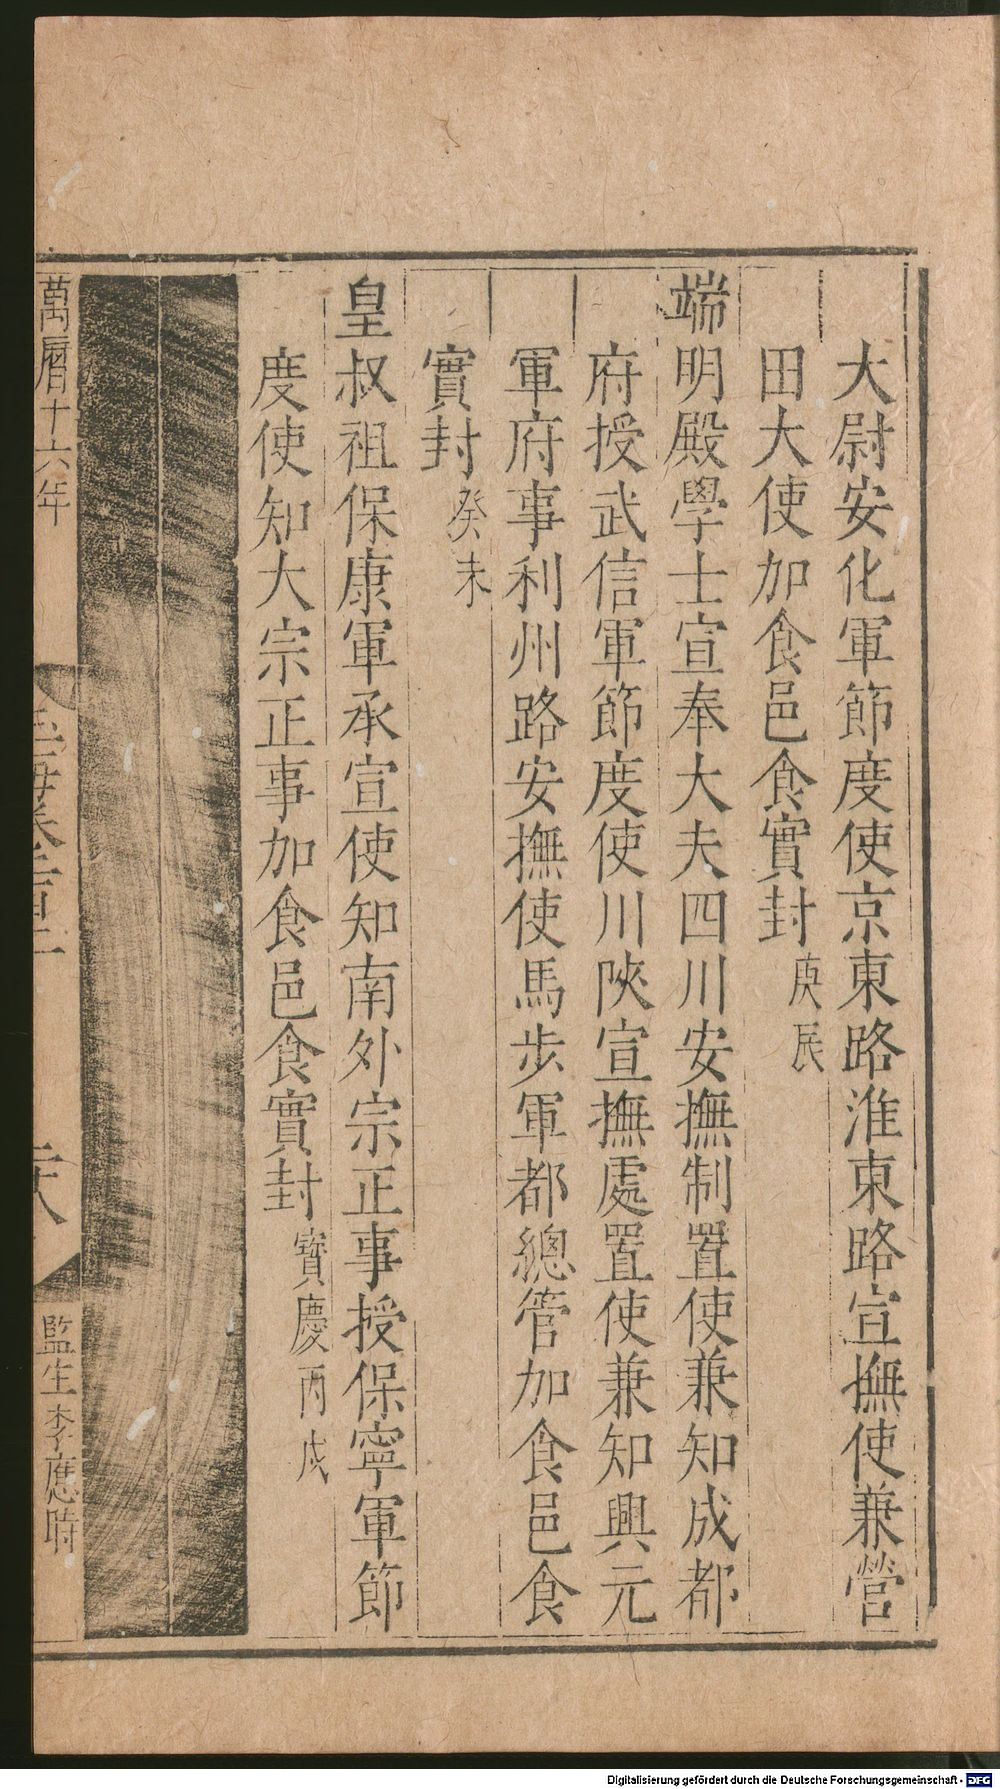 大尉安化軍節度使京東路淮東路宣撫使兼營
田大使加食邑食實封庚辰
端明殿學士宣奉大夫四川安撫制置使兼知成都
府授武信軍節度使川陝宣撫處置使兼知興元
軍府事利州路安撫使馬步軍都總管加食邑食
實封癸未
皇叔祖保康軍承宣使知南外宗正事授保寧軍節
度使知大宗正事加食邑食實封寶慶丙戌
萬曆十六年
監生李應時
Digitalisierung gefördert durch die Deutsche Forschungsgemeinschaft - DFG